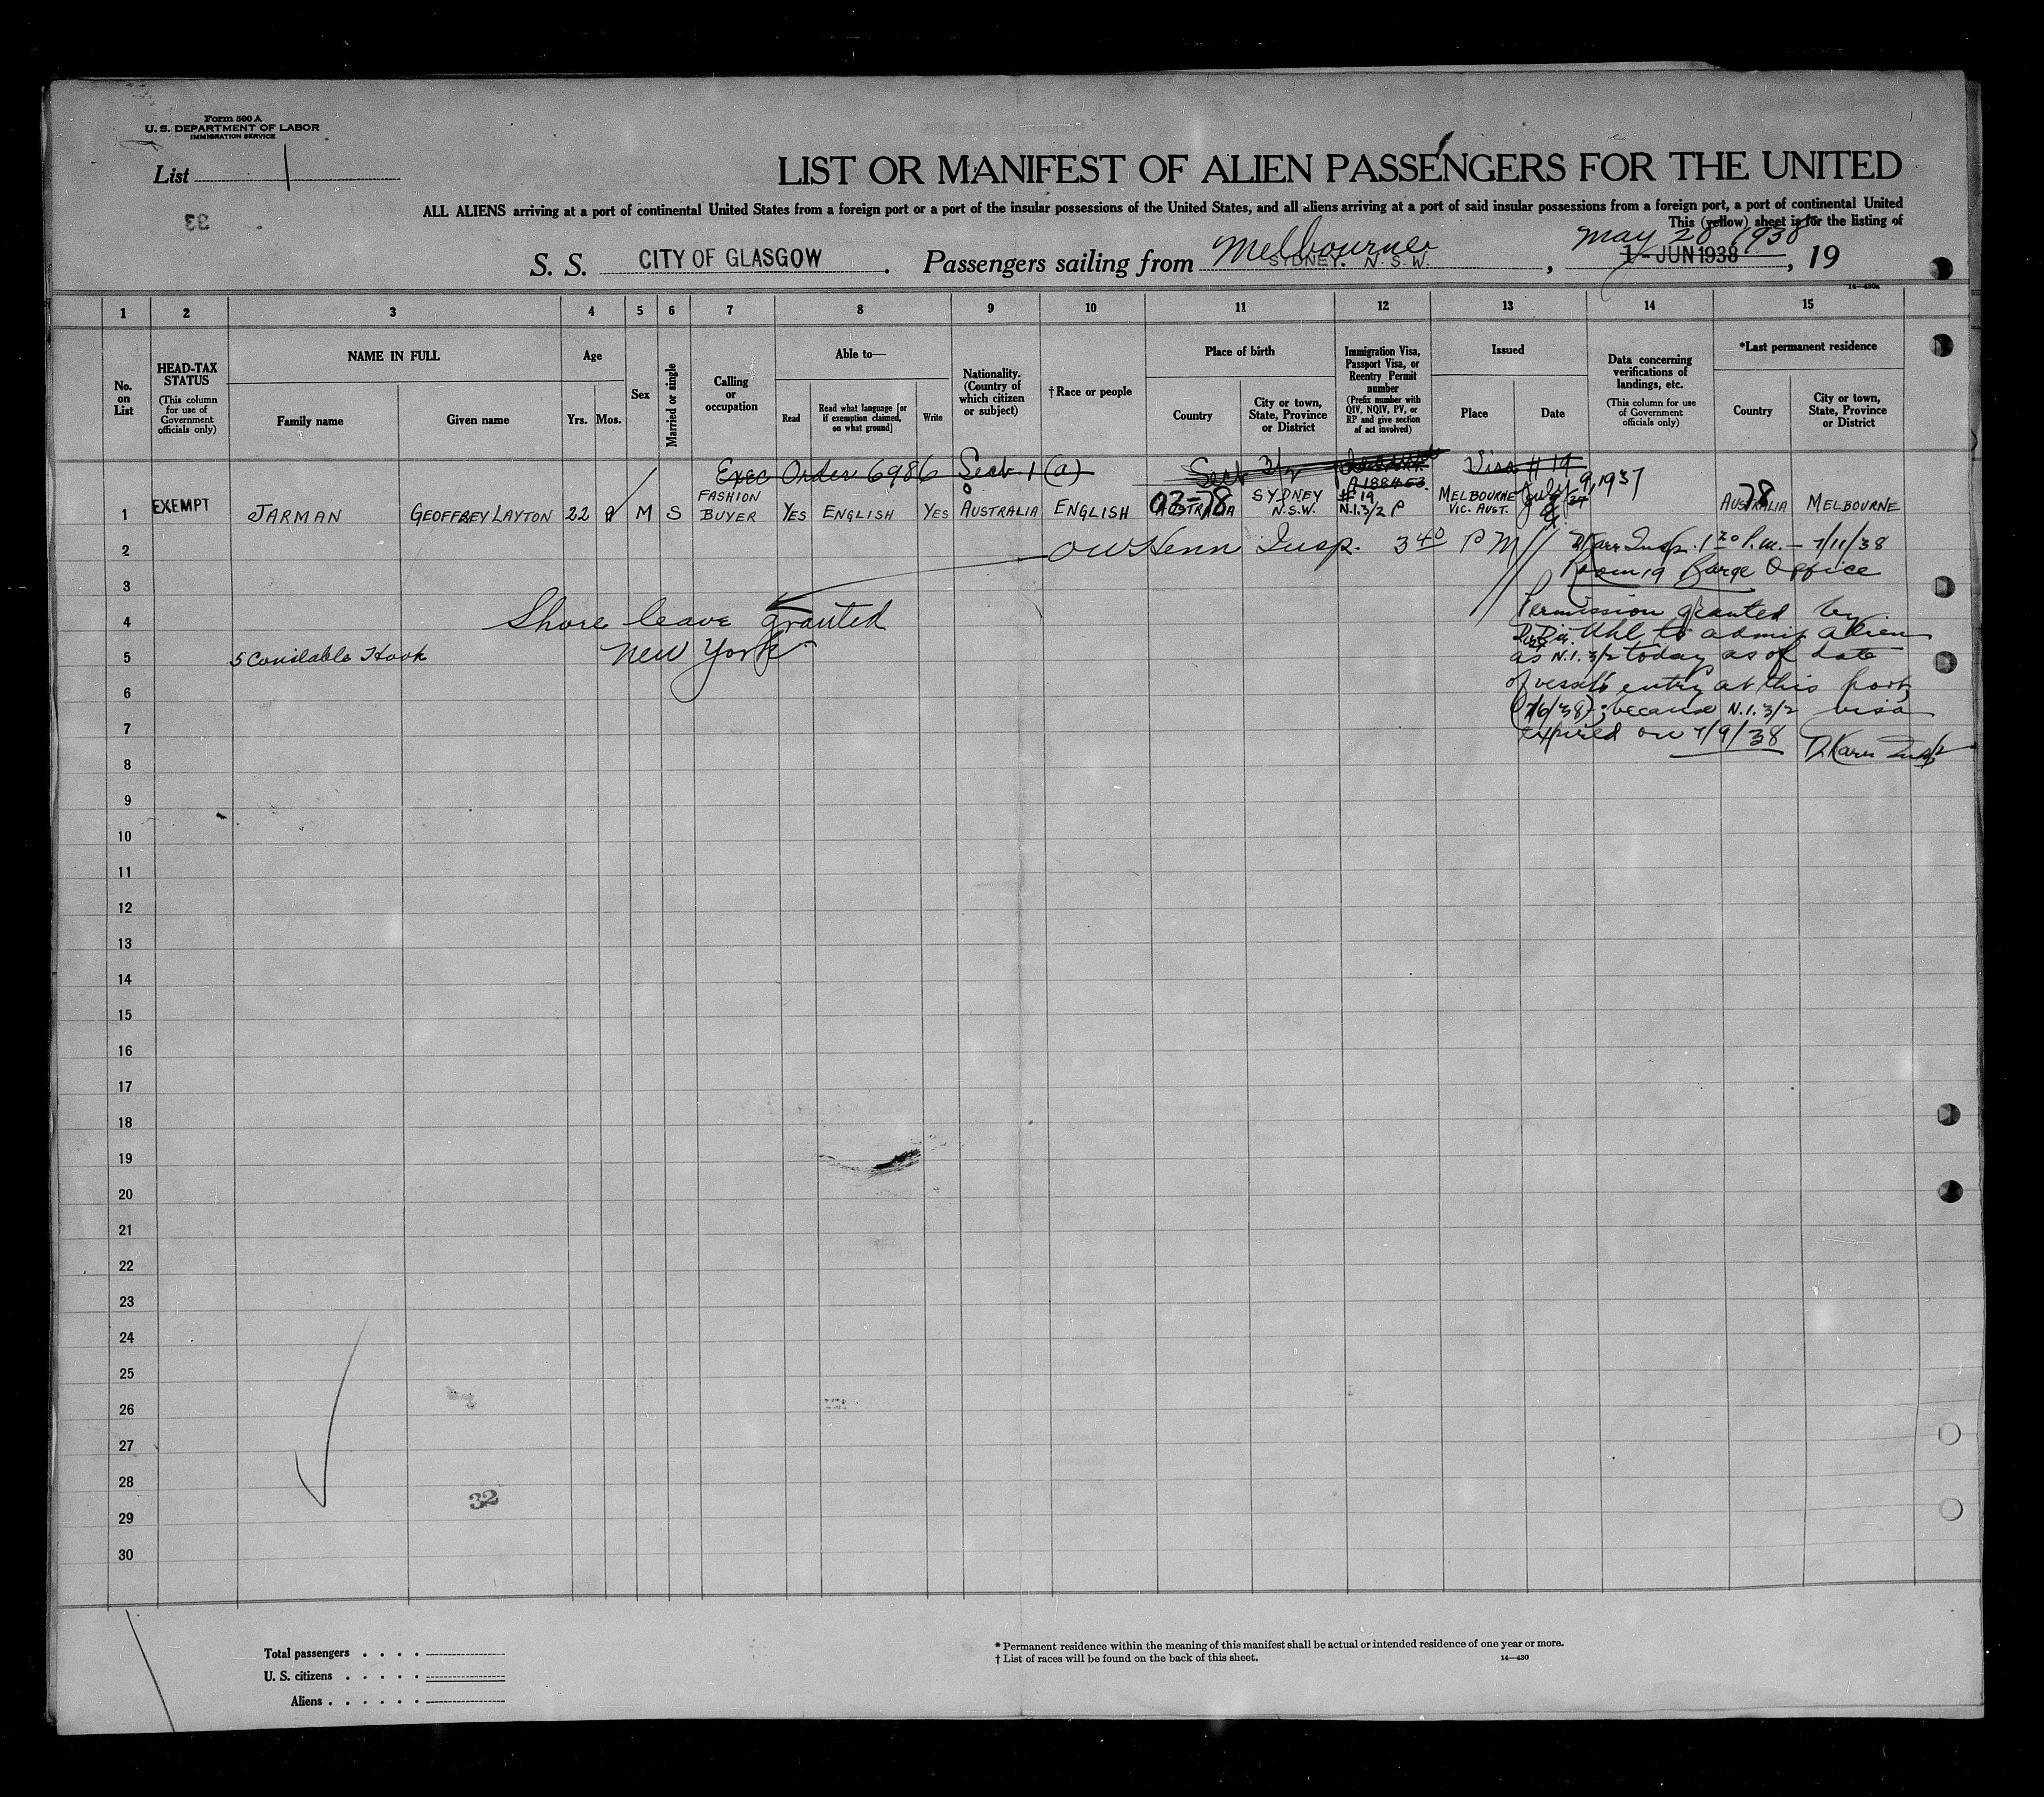 Form 500 A
U. S. DEPARTMENT OF LABOR
IMMIGRATION SERVICE
List 1
33
LIST OR MANIFEST OF ALIEN PASSENGERS FOR THE UNITED
ALL ALIENS arriving at a port of continental United States from a foreign port or a port of the insular possessions of the United States, and all aliens arriving at a port of said insular possessions from a foreign port, a port of continental United
This (yellow) sheet is for the listing of
May 28 1938
S. S. CITY OF GLASGOW. Passengers sailing from Melbourne SYDNEY. N.S.W., 1-JUN 1938, 19
14—430a
1 2 3 4 5 6 7 8 9 10 11 12 13 14 15
No. on List
HEAD-TAX STATUS (This column for use of Government officials only)
NAME IN FULL
Family name
Given name
Age
Yrs. Mos.
Sex
Married or single
Calling or occupation
Able to—
Read
Read what language [or if exemption claimed, on what ground]
Write
Nationality. (Country of which citizen or subject)
†Race or people
Place of birth
Country
City or town, State, Province or District
Immigration Visa, Passport Visa, or Reentry Permit number (Prefix number with QIV, NQIV, PV, or RP and give section of act involved)
Issued
Place
Date
Data concerning verifications of landings, etc. (This column for use of Government officials only)
*Last permanent residence
Country
City or town, State, Province or District
Exec Order 6986 Sect 1 (a) Sect 3/2 Visa #19
1 EXEMPT JARMAN GEOFFREY LAYTON 22 M S FASHION BUYER YES ENGLISH YES AUSTRALIA ENGLISH AUSTRALIA 07-78 SYDNEY N.S.W. #19 N.I.3/2 P MELBOURNE VIC. AUST. July 9, 1937 AUSTRALIA 78 MELBOURNE
2 Insp. 3 40 P M Insp. 1 20 P.m. — 7/11/38
3 Room 19 Barge Office
4 Shore leave granted Permission granted by
Uhl to admit alien
5 Constable Hook New York as N.I. 3/2 today as of date
6 of vessel's entry at this port
7 (7/6/38); because N.I. 3/2 visa
expired on 7/9/38
8
9
10
11
12
13
14
15
16
17
18
19
20
21
22
23
24
25
26
27
28
32
29
30
Total passengers
U. S. citizens
Aliens
* Permanent residence within the meaning of this manifest shall be actual or intended residence of one year or more.
† List of races will be found on the back of this sheet.
14—430